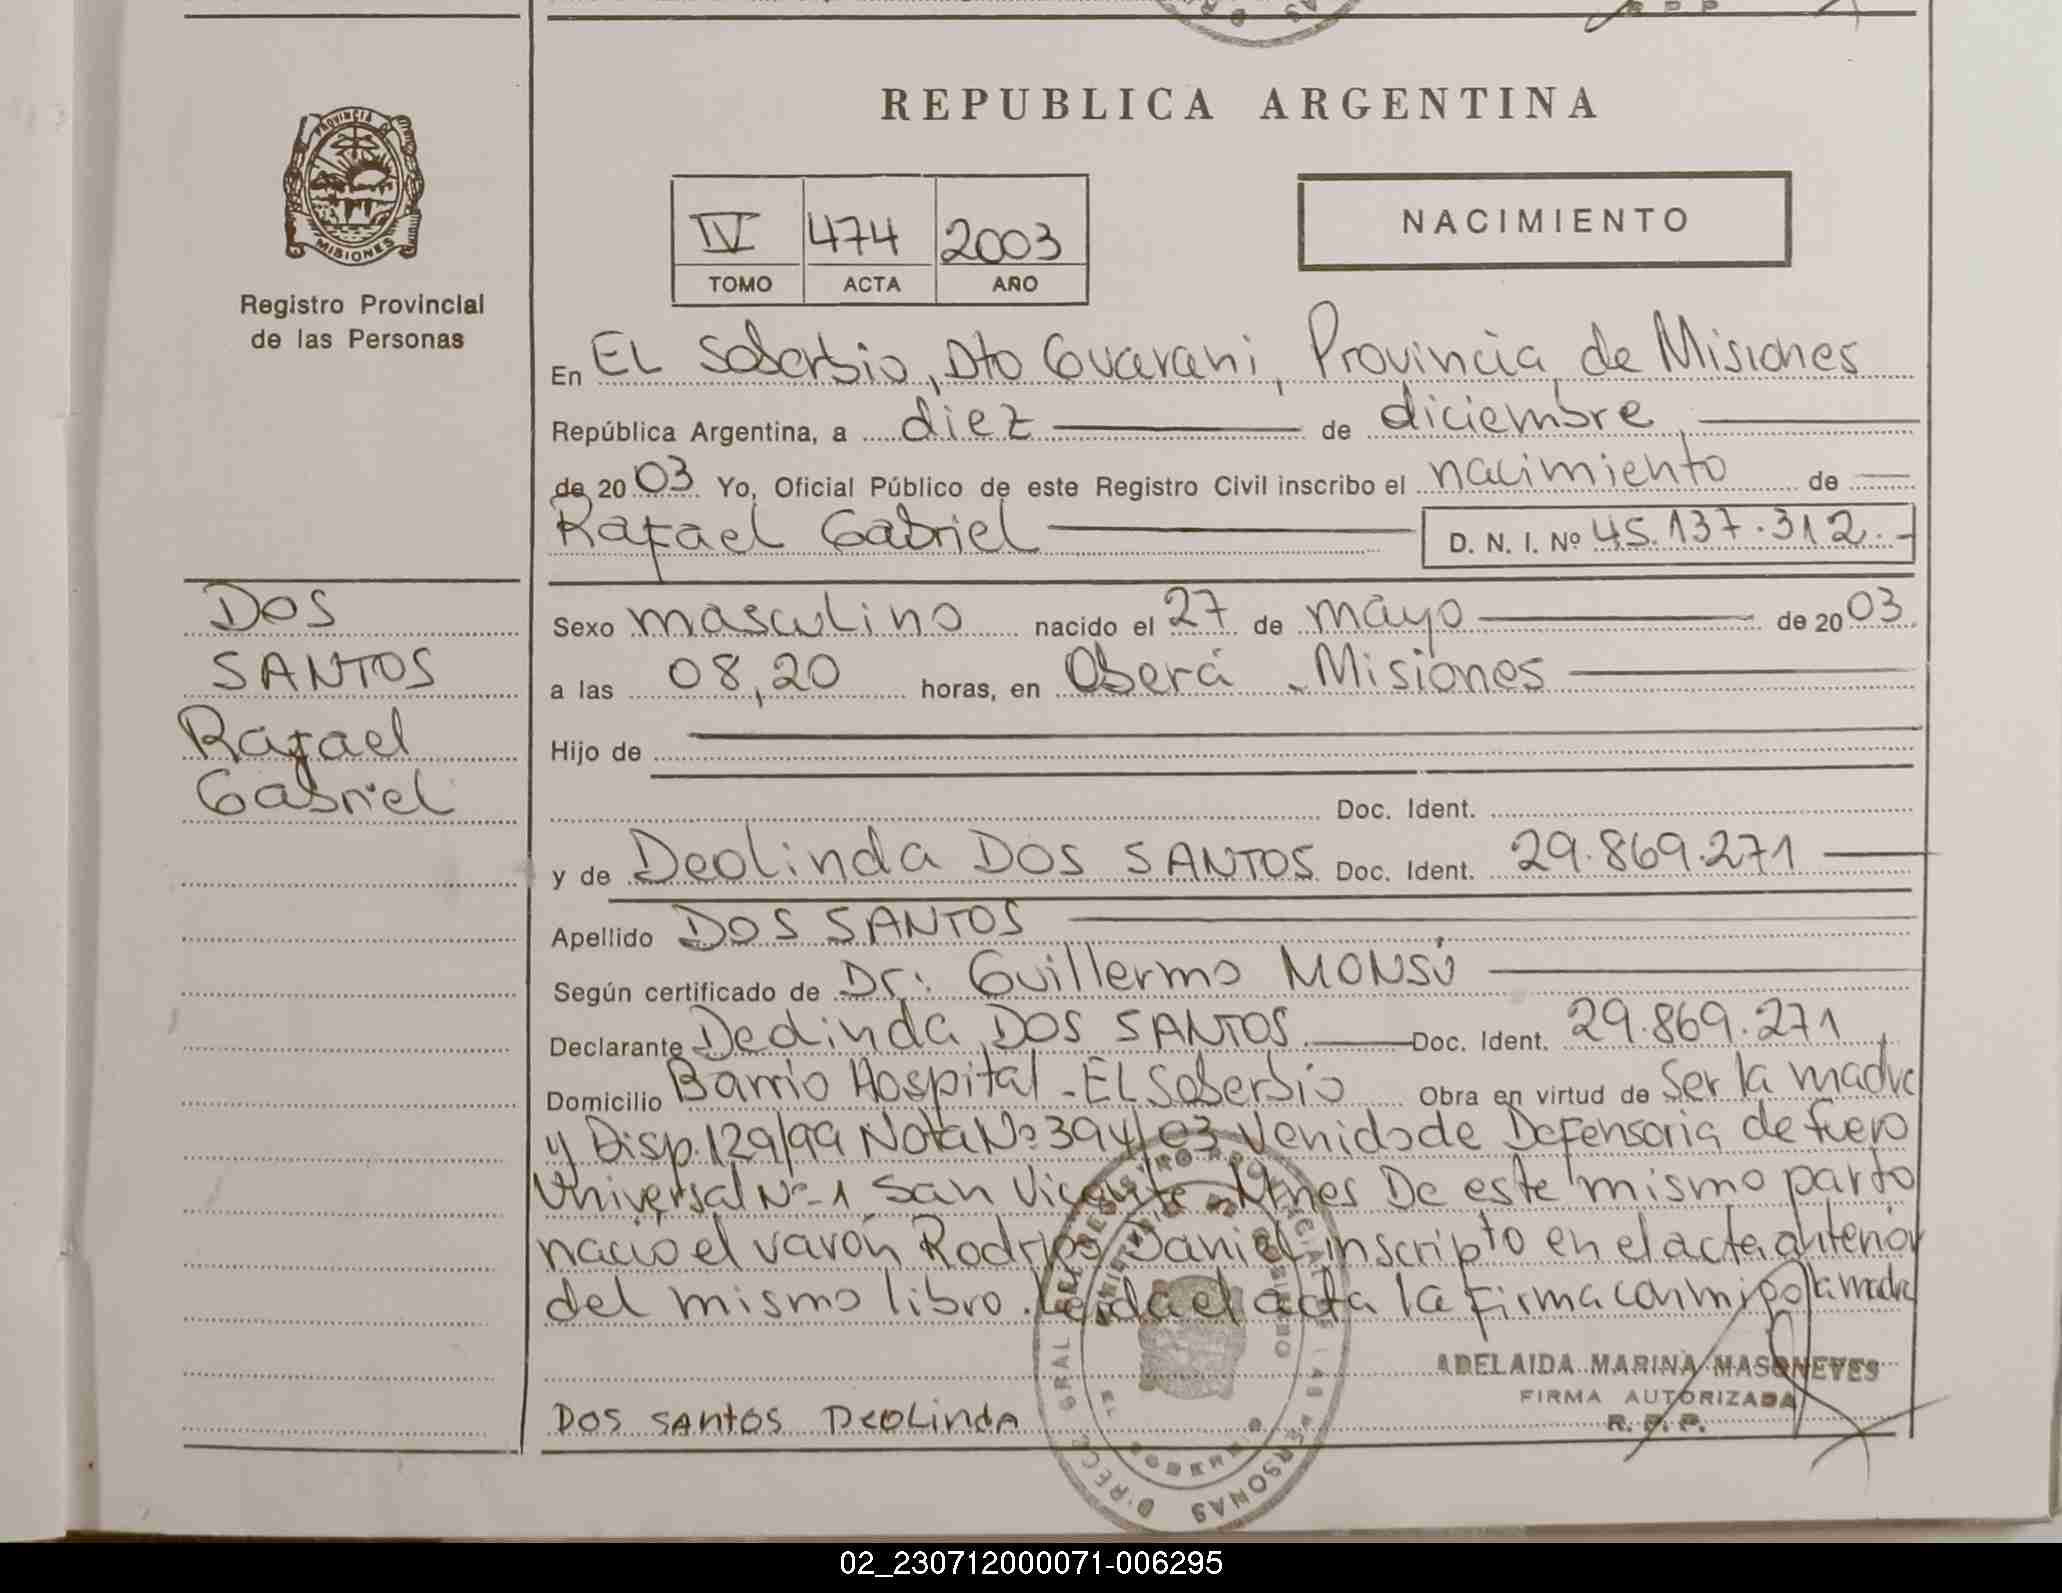 REPUBLICA ARGENTINA
PROVINCIA DE
MISIONES
Registro Provincial
de las Personas
IV 474 2003
TOMO ACTA AÑO
NACIMIENTO
En EL Soberbio, Dto Guarani, Provincia de Misiones
República Argentina, a diez de diciembre
de 20 03 Yo, Oficial Público de este Registro Civil inscribo el nacimiento de
Rafael Gabriel D. N. I. Nº 45.137.312.-
DOS
SANTOS
Rafael
Gabriel
Sexo masculino nacido el 27 de mayo de 20 03
a las 08,20 horas, en Oberá - Misiones
Hijo de
Doc. Ident.
y de Deolinda DOS SANTOS Doc. Ident. 29.869.271
Apellido DOS SANTOS
Según certificado de Dr: Guillermo MONSÚ
Declarante Deolinda DOS SANTOS Doc. Ident. 29.869.271
Domicilio Barrio Hospital - EL Soberbio Obra en virtud de Ser la madre
y Disp. 129/99 Nota Nº 394/03 Venido de Defensoria de fuero
Universal Nº-1 San Vicente - Mnes De este mismo parto
nacio el varón Rodrigo Daniel inscripto en el acta anterior
del mismo libro. Leida el acta la firma conmigo la madre
ADELAIDA MARINA MASONEVES
FIRMA AUTORIZADA
R. P. P.
DOS SANTOS DEOLINDA
02_230712000071-006295